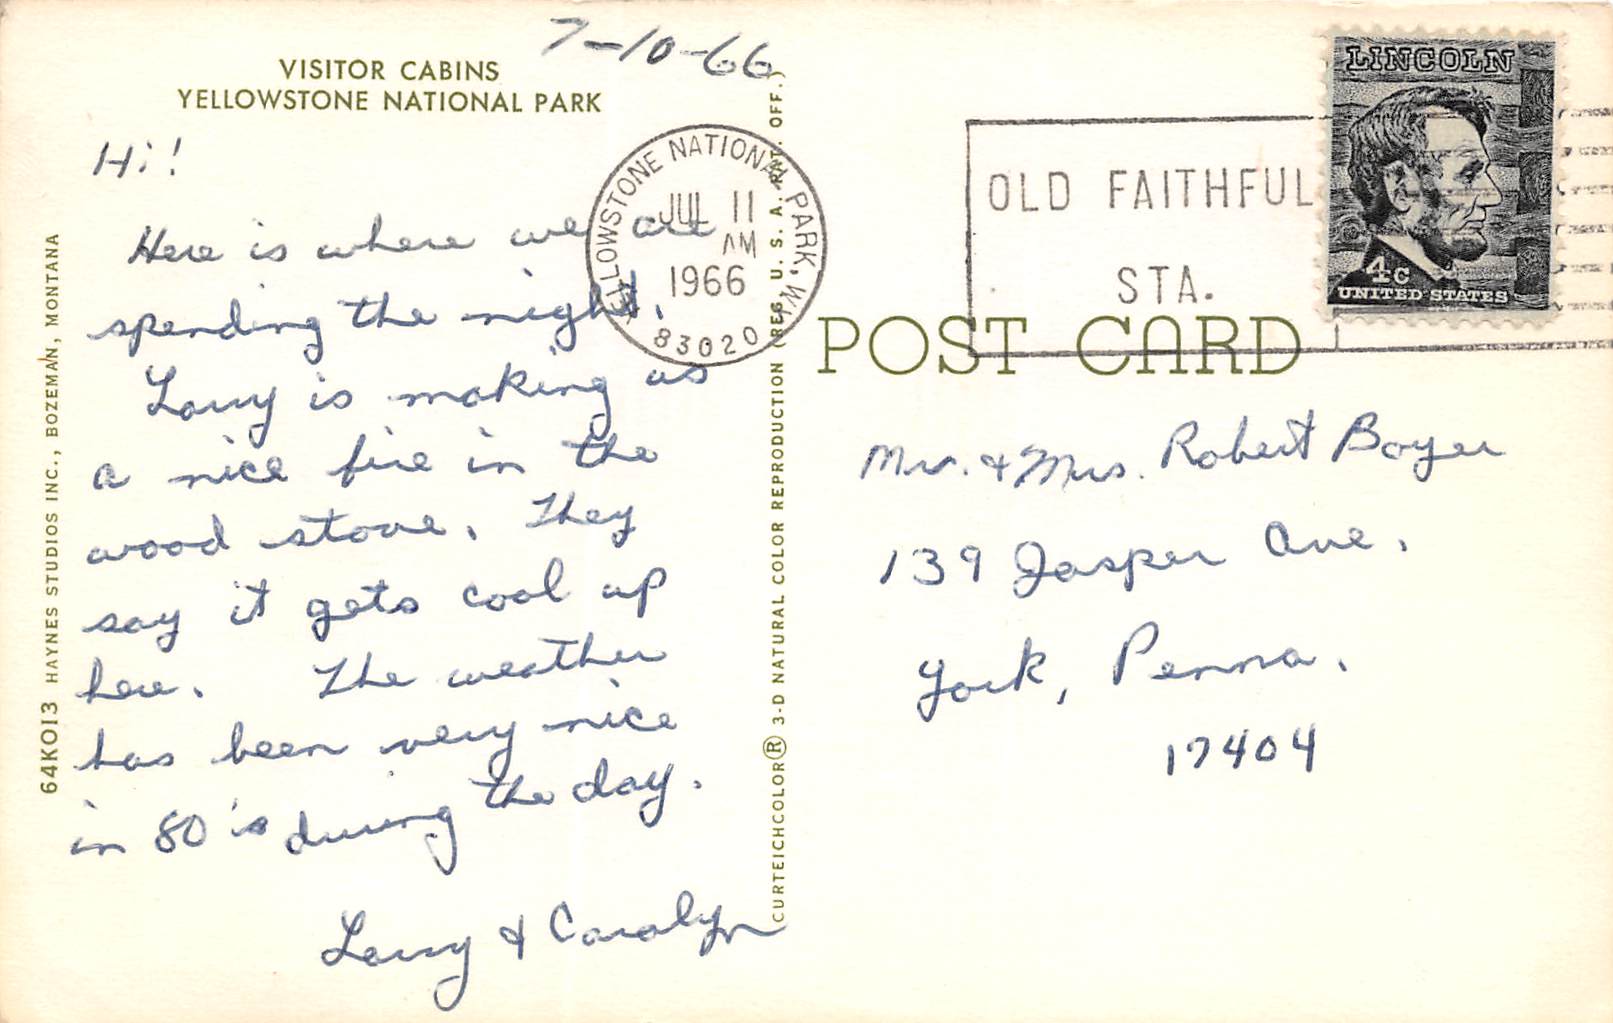 7-10-66
VISITOR CABINS
YELLOWSTONE NATIONAL PARK
Hi!
Here is where we are
spending the night.
Larry is making us
a nice fire in the
wood stove. They
say it gets cool up
here. The weather
has been very nice
in 80's during the day.
Larry & Carolyn
64K013 HAYNES STUDIOS INC., BOZEMAN, MONTANA
CURTEICHCOLOR® 3-D NATURAL COLOR REPRODUCTION (REG. U. S. A. PAT. OFF.)
YELLOWSTONE NATIONAL PARK, WY.
JUL 11
AM
1966
83020
OLD FAITHFUL
STA.
LINCOLN
4c
UNITED STATES
POST CARD
Mr. & Mrs. Robert Boyer
139 Jasper Ave.
York, Penna.
17404